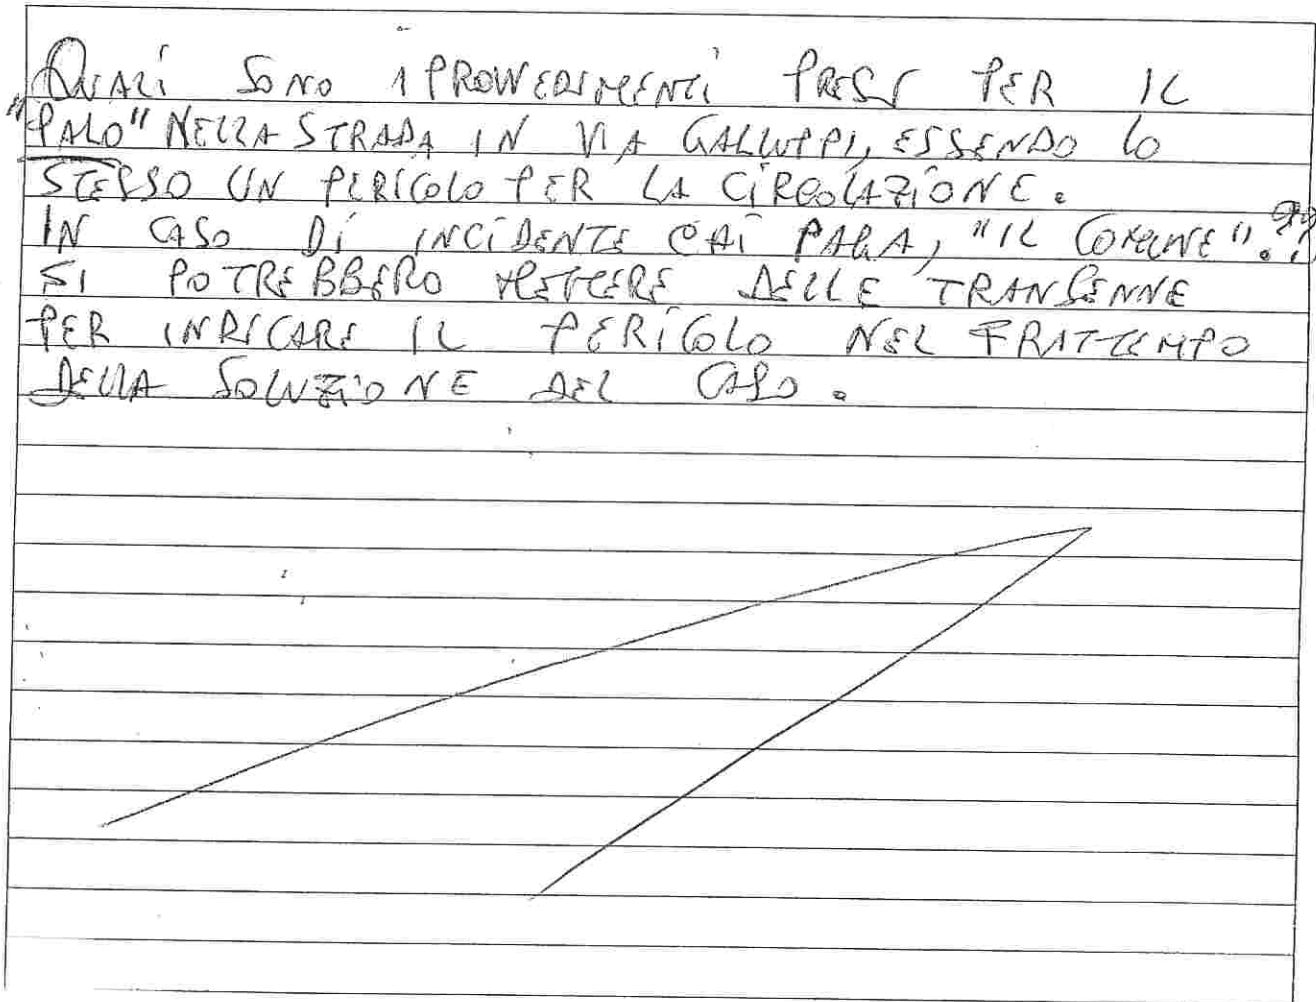 QUALI SONO I PROVVEDIMENTI PRESI PER IL
"PALO" NELLA STRADA IN VIA GALLUPPI, ESSENDO LO
STESSO UN PERICOLO PER LA CIRCOLAZIONE.
IN CASO DI INCIDENTE CHI PAGA, "IL COMUNE".??
SI POTREBBERO METTERE DELLE TRANSENNE
PER INDICARE IL PERICOLO NEL FRATTEMPO
DELLA SOLUZIONE DEL CASO.